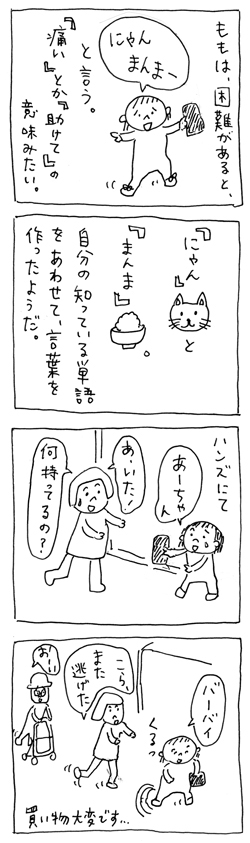 ももは、困
難があると、
にゃん
まんまー
と言う。
『痛い』とか『助けて』の
意味みたい。
『にゃん』と
『まんま』。
自分の知っている単語
をあわせて、言葉を
作ったようだ。
ハンズにて
あーちゃん
あ、いた!
何持ってるの?
バーバイ
くるっ
こら、
また
逃げた
おーい
買い物大変です…